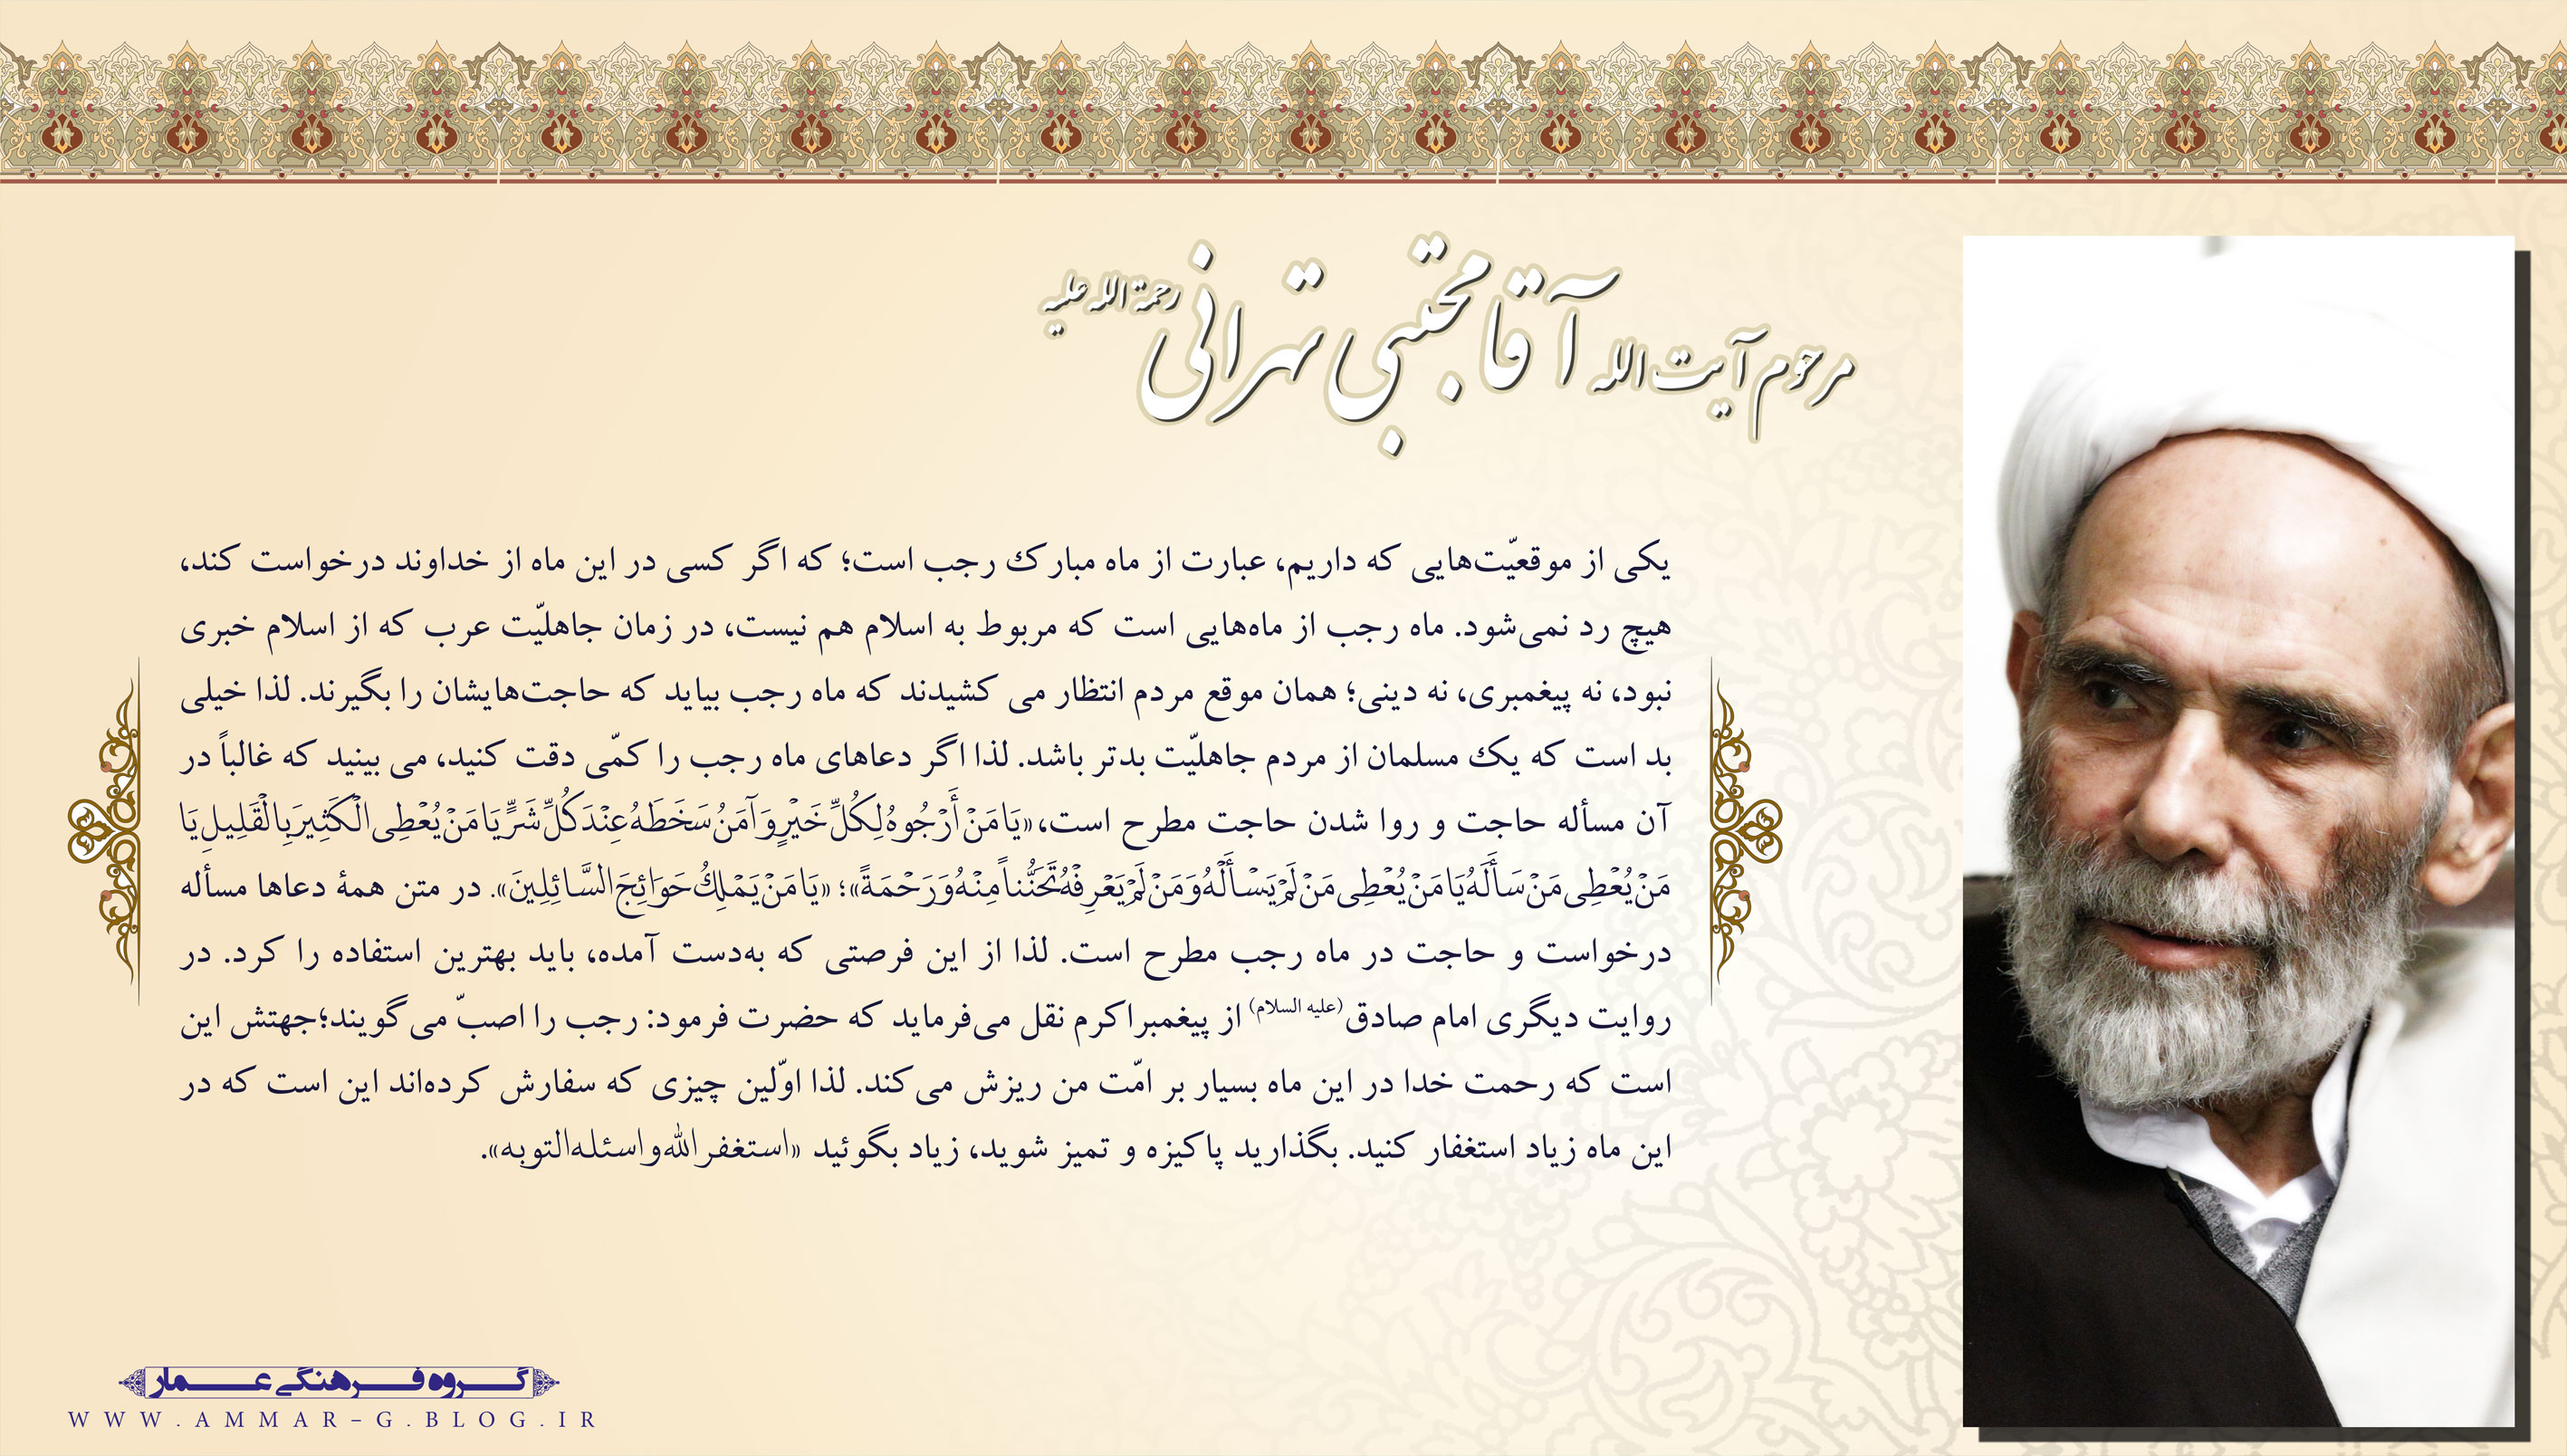 مرحوم آیت الله آقا مجتبی تهرانی رحمة الله علیه
یکی از موقعیّت‌هایی که داریم، عبارت از ماه مبارک رجب است؛ که اگر کسی در این ماه از خداوند درخواست کند،
هیچ رد نمی‌شود. ماه رجب از ماه‌هایی است که مربوط به اسلام هم نیست، در زمان جاهلیّت عرب که از اسلام خبری
نبود، نه پیغمبری، نه دینی؛ همان موقع مردم انتظار می کشیدند که ماه رجب بیاید که حاجت‌هایشان را بگیرند. لذا خیلی
بد است که یک مسلمان از مردم جاهلیّت بدتر باشد. لذا اگر دعاهای ماه رجب را کمّی دقت کنید، می بینید که غالباً در
آن مسأله حاجت و روا شدن حاجت مطرح است، «یَا مَنْ أَرْجُوهُ لِکُلِّ خَیْرٍ وَ آمَنُ سَخَطَهُ عِنْدَ کُلِّ شَرٍّ یَا مَنْ یُعْطِی الْکَثِیرَ بِالْقَلِیلِ یَا
مَنْ یُعْطِی مَنْ سَأَلَهُ یَا مَنْ یُعْطِی مَنْ لَمْ یَسْأَلْهُ وَ مَنْ لَمْ یَعْرِفْهُ تَحَنُّناً مِنْهُ وَ رَحْمَةً»؛ «یَا مَنْ یَمْلِکُ حَوَائِجَ السَّائِلِینَ». در متن همهٔ دعاها مسأله
درخواست و حاجت در ماه رجب مطرح است. لذا از این فرصتی که به‌دست آمده، باید بهترین استفاده را کرد. در
روایت دیگری امام صادق(علیه السلام) از پیغمبراکرم نقل می‌فرماید که حضرت فرمود: رجب را اصبّ می گویند؛جهتش این
است که رحمت خدا در این ماه بسیار بر امّت من ریزش می‌کند. لذا اوّلین چیزی که سفارش کرده‌اند این است که در
این ماه زیاد استغفار کنید. بگذارید پاکیزه و تمیز شوید، زیاد بگوئید «استغفر الله و اسئله التوبه».
گروه فرهنگی عمار
WWW.AMMAR-G.BLOG.IR